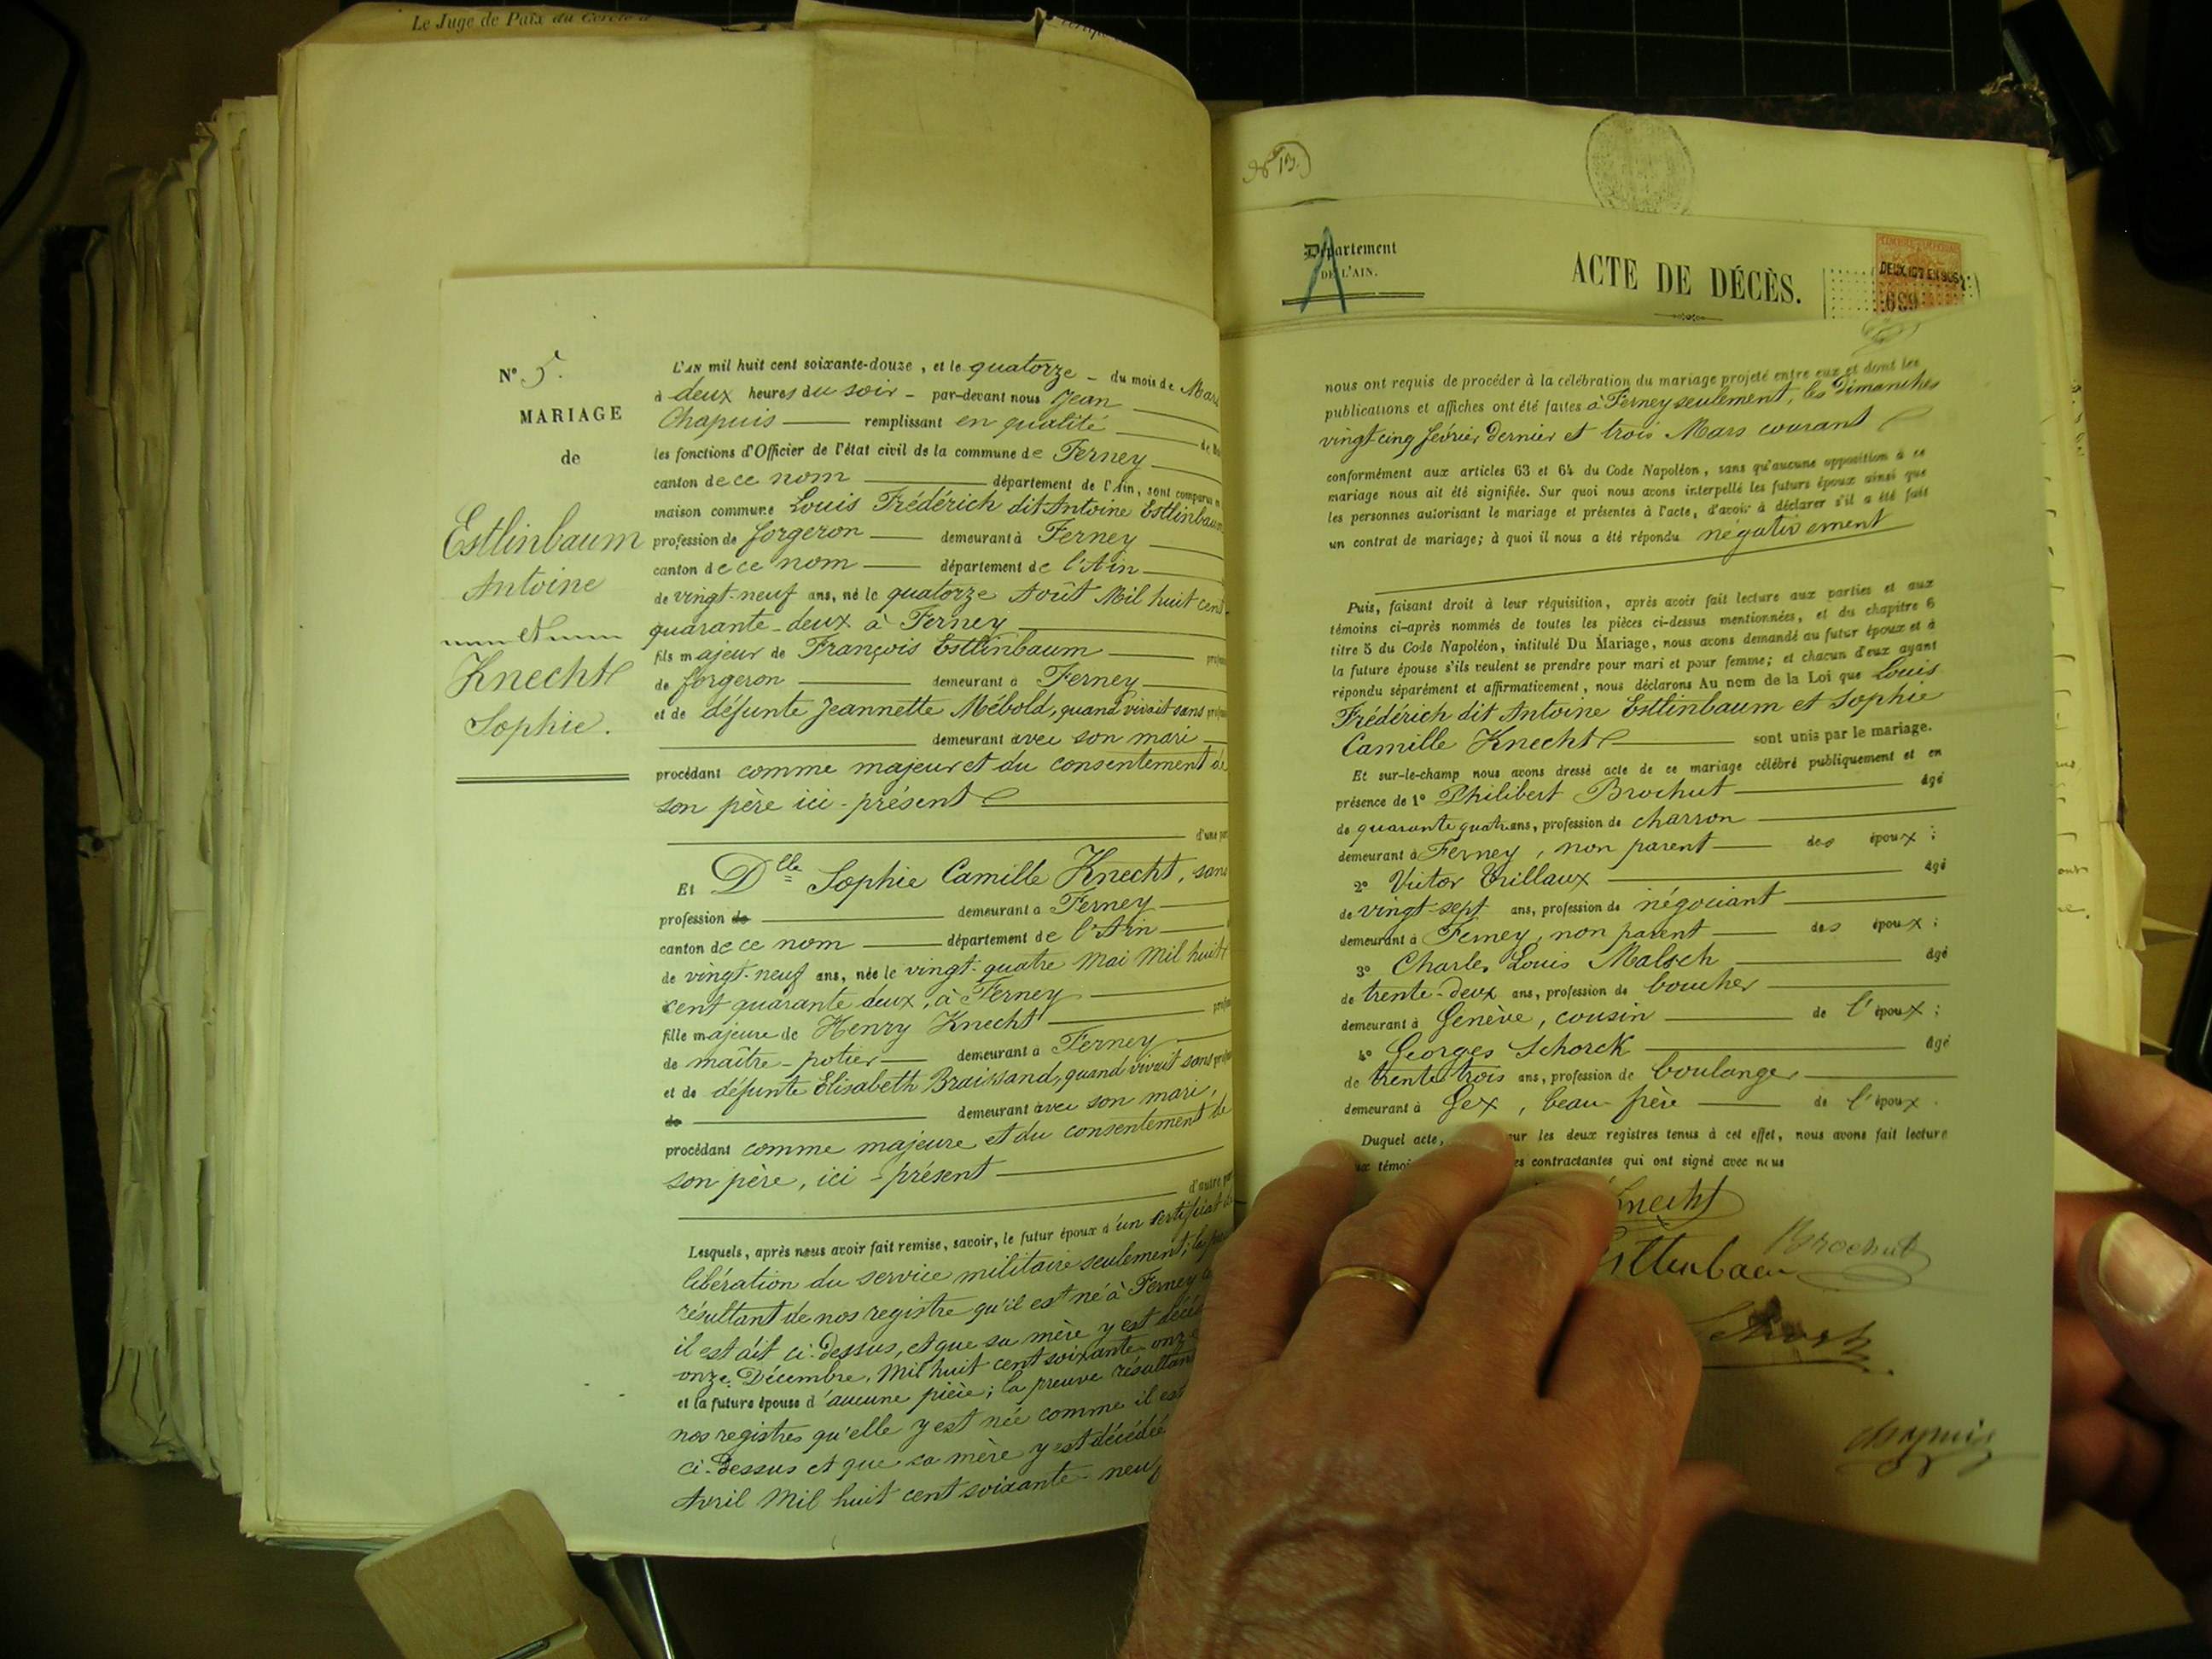 Le Juge de Paix du Cercle
N° 5.
MARIAGE
de
Estlinbaum
Antoine
et
Knecht
Sophie.
L'AN mil huit cent soixante-douze, et le quatorze - du mois de Mars
à deux heures du soir - par-devant nous Jean
Chapuis remplissant en qualité de
les fonctions d'Officier de l'état civil de la commune de Ferney
canton de ce nom département de l'Ain, sont comparus
maison commune Louis Frédérich dit Antoine Estlinbaum
profession de forgeron demeurant à Ferney
canton de ce nom département de l'Ain
de vingt-neuf ans, né le quatorze Août Mil huit cent
quarante-deux à Ferney
fils majeur de François Estlinbaum
de forgeron demeurant à Ferney
et de défunte Jeannette Mébold, quand vivait sans
demeurant avec son mari
procédant comme majeur et du consentement de
son père ici-présent
d'une
Et Dlle Sophie Camille Knecht, sans
profession de demeurant à Ferney
canton de ce nom département de l'Ain
de vingt-neuf ans, née le vingt-quatre Mai Mil huit
cent quarante deux, à Ferney
fille majeure de Henry Knecht
de maître-potier demeurant à Ferney
et de défunte Elisabeth Braissand, quand vivait sans
de demeurant avec son mari,
procédant comme majeure et du consentement de
son père, ici-présent
d'autre
Lesquels, après nous avoir fait remise, savoir, le futur époux d'un certificat de
libération du service militaire seulement;
résultant de nos registre qu'il est né à Ferney
il est dit ci-dessus, et que sa mère y est
onze Décembre, Mil huit cent soixante-onze
et la future épouse d'aucune pièce; la preuve résultant
nos registres qu'elle y est née comme il est
ci-dessus et que sa mère y est décédée
Avril Mil huit cent soixante-neuf
N° 13.
Département
DE L'AIN.
A
ACTE DE DÉCÈS.
689
nous ont requis de procéder à la célébration du mariage projeté entre eux et dont les
publications et affiches ont été faites à Ferney seulement, les Dimanches
vingt cinq février dernier et trois Mars courant
conformément aux articles 63 et 64 du Code Napoléon, sans qu'aucune opposition à ce
mariage nous ait été signifiée. Sur quoi nous avons interpellé les futurs époux ainsi que
les personnes autorisant le mariage et présentes à l'acte, d'avoir à déclarer s'il a été fait
un contrat de mariage; à quoi il nous a été répondu négativement
Puis, faisant droit à leur réquisition, après avoir fait lecture aux parties et aux
témoins ci-après nommés de toutes les pièces ci-dessus mentionnées, et du chapitre 6
titre 5 du Code Napoléon, intitulé Du Mariage, nous avons demandé au futur époux et à
la future épouse s'ils veulent se prendre pour mari et pour femme; et chacun d'eux ayant
répondu séparément et affirmativement, nous déclarons Au nom de la Loi que Louis
Frédérich dit Antoine Estlinbaum et Sophie
Camille Knecht sont unis par le mariage.
Et sur-le-champ nous avons dressé acte de ce mariage célébré publiquement et en
présence de 1° Philibert Brochut âgé
de quarante quatre ans, profession de charron
demeurant à Ferney, non parent des époux;
2° Victor Trillaux âgé
de vingt-sept ans, profession de négociant
demeurant à Ferney, non parent des époux;
3° Charles Louis Malsch âgé
de trente-deux ans, profession de boucher
demeurant à Genève, cousin de l'époux;
4° Georges Schorck âgé
de trente trois ans, profession de boulanger
demeurant à Gex, beau-frère de l'époux.
Duquel acte, sur les deux registres tenus à cet effet, nous avons fait lecture
contractantes qui ont signé avec nous
Knecht
Brochut
Chapuis